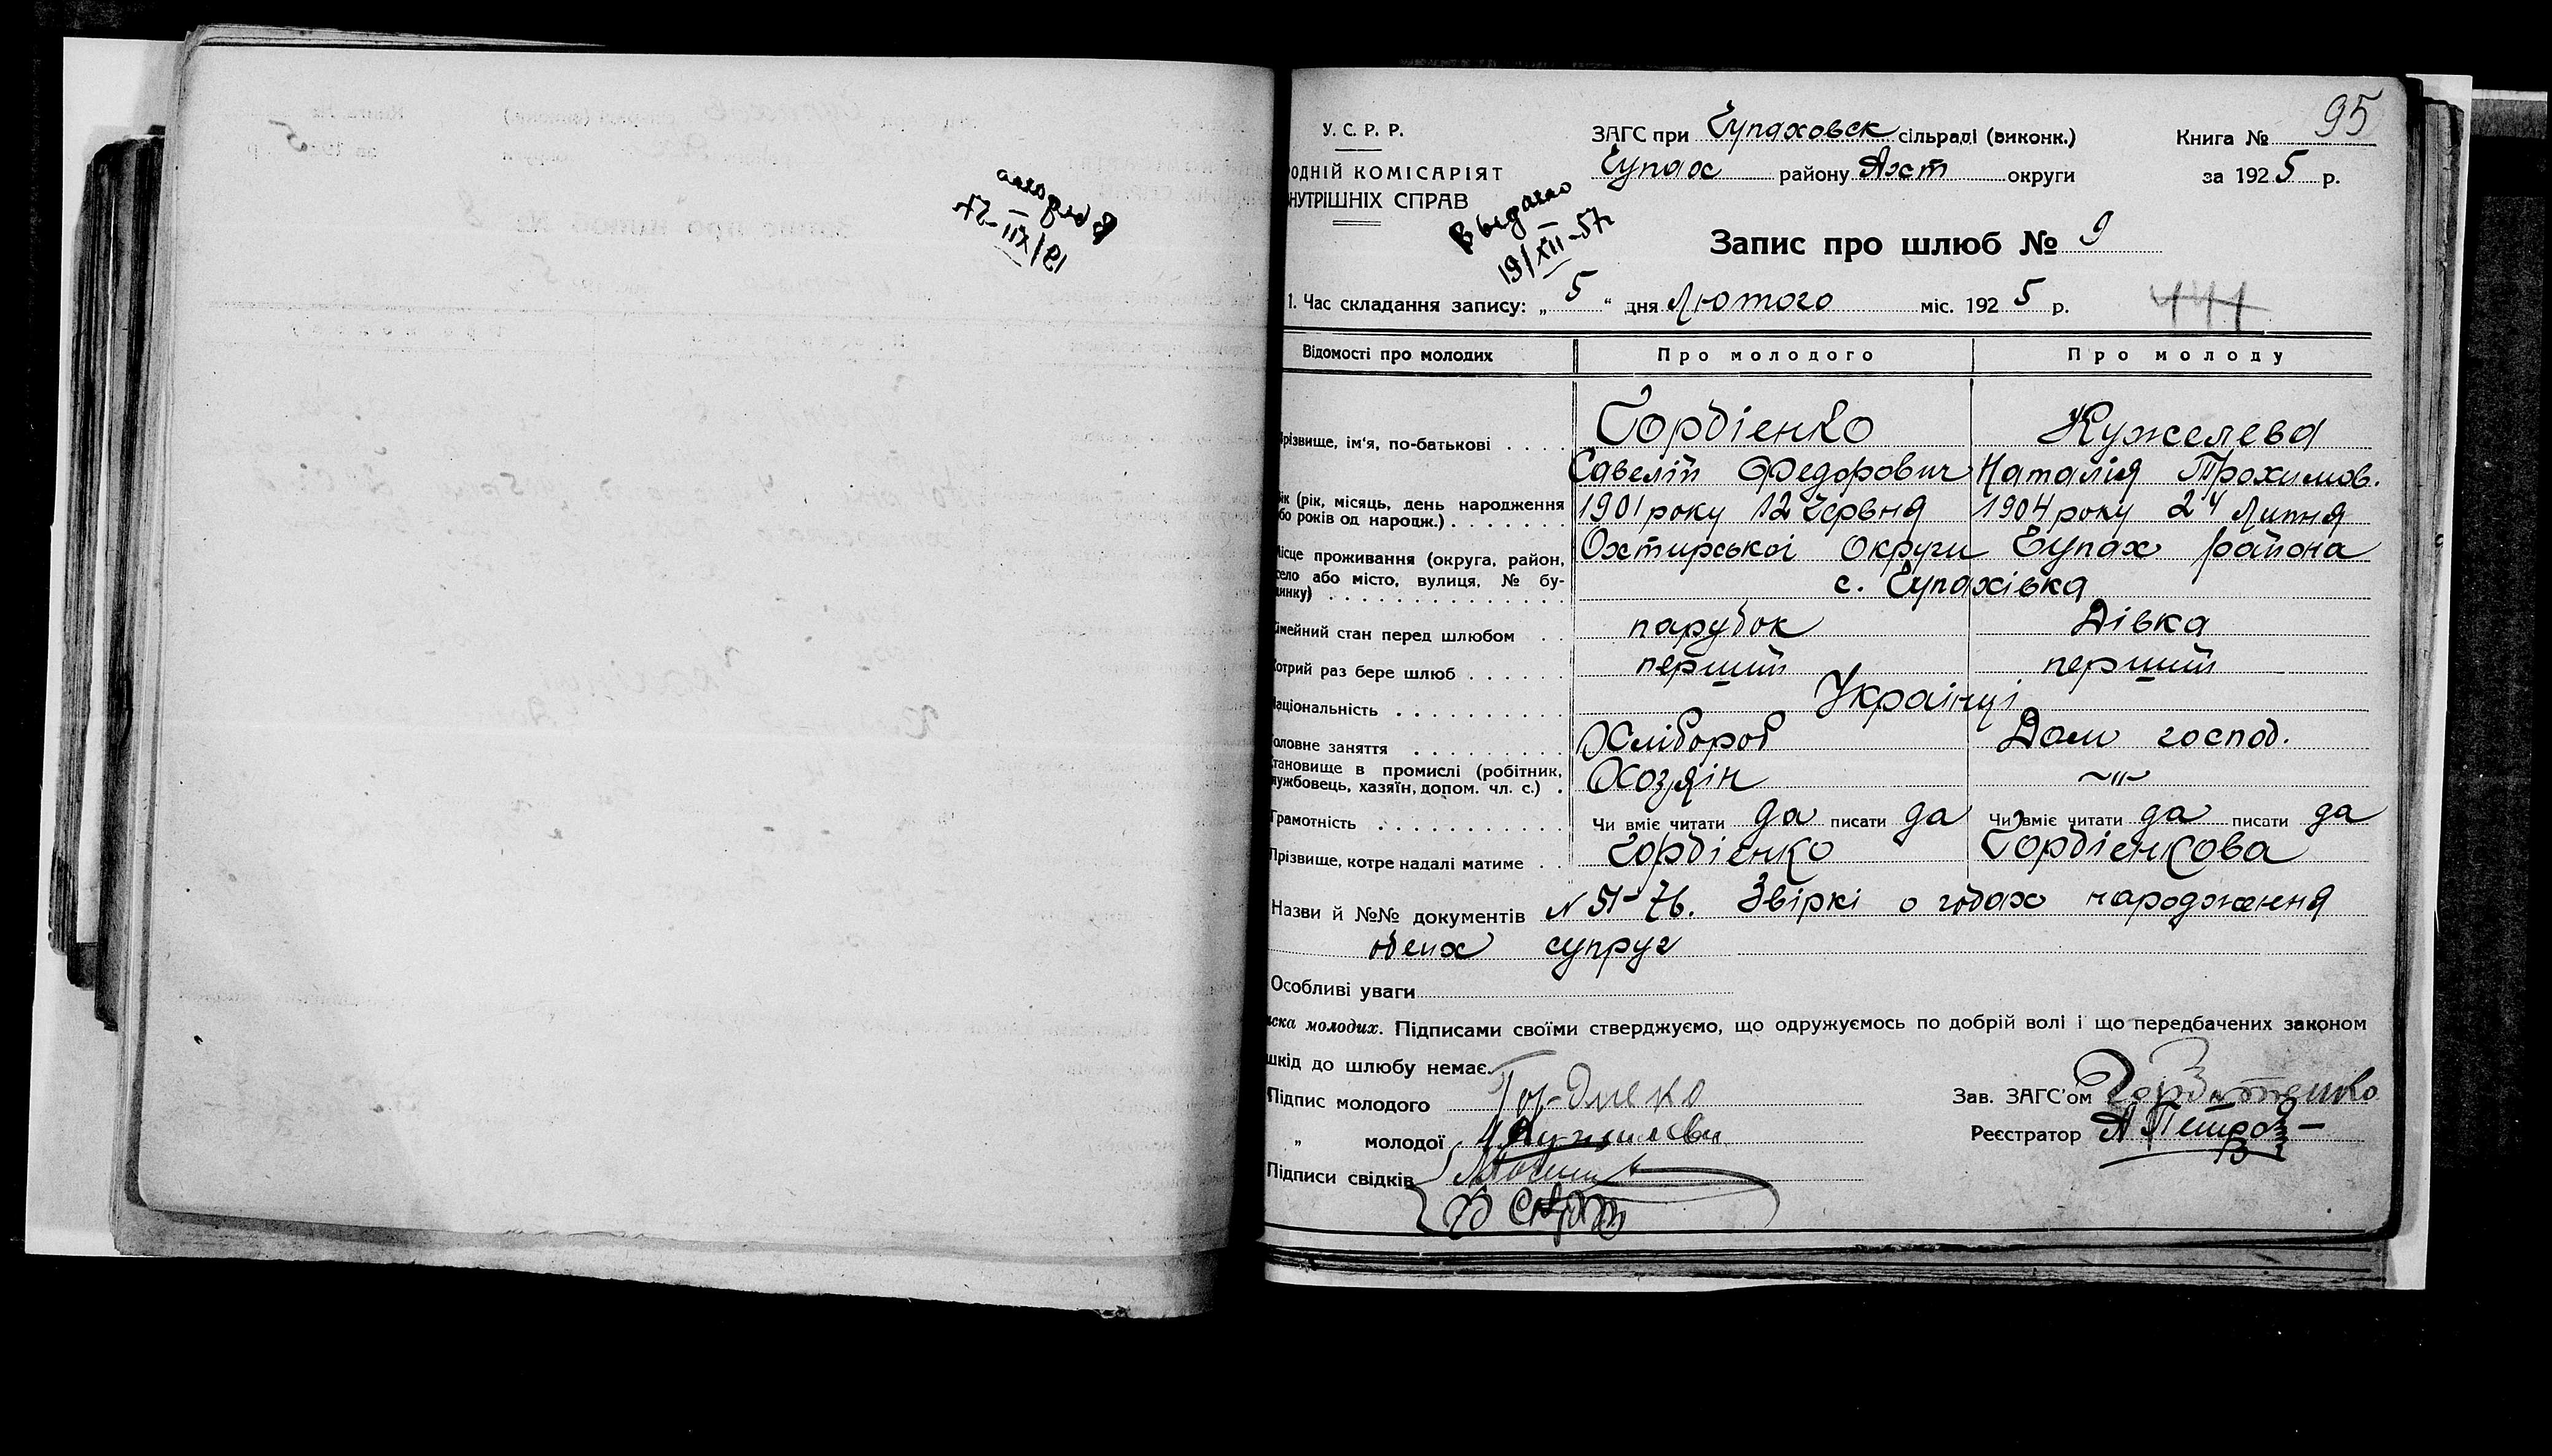 95
У. С. Р. Р.
ОДНІЙ КОМІСАРІЯТ
НУТРІШНІХ СПРАВ
ЗАГС при Чупаховск сільраді (виконк.)
Чупах району Ахт округи
Книга №
за 1925 р.
Выдано
19/XII-57г
Запис про шлюб № 9
1. Час складання запису: „5“ дня Лютого міс. 1925 р.
441
Відомості про молодих Про молодого Про молоду
різвище, ім'я, по-батькові . . . . Гордіенко Кужелева
Савелій Федорович Наталія Трохимов.
ік (рік, місяць, день народження
бо років од народж.) . . . . . . . 1901 року 12 Червня 1904 року 24 Липня
ісце проживання (округа, район, Охтирськоі Округи Чупах района
село або місто, вулиця, № бу-
динку) . . . . . . . . . . . . . . с. Чупахівка
імейний стан перед шлюбом . . парубок Дівка
отрий раз бере шлюб . . . . . . перший перший
аціональність . . . . . . . . . . Украінці
оловне заняття . . . . . . . . . Хлібороб Дом господ.
тановище в промислі (робітник,
лужбовець, хазяїн, допом. чл. с.) . Хозяін ~"~
Грамотність . . . . . . . . . . . Чи вміє читати да писати да Чи вміє читати да писати да
Прізвище, котре надалі матиме . . Гордіенко Гордіенкова
Назви й №№ документів N 51-76. Звіркі о годах народження
обеих супруг
Особливі уваги
иска молодих. Підписами своїми стверджуємо, що одружуємось по добрій волі і що передбачених законом
шкід до шлюбу немає.
Підпис молодого
Зав. ЗАГС'ом
„ молодої
Реєстратор
Підписи свідків